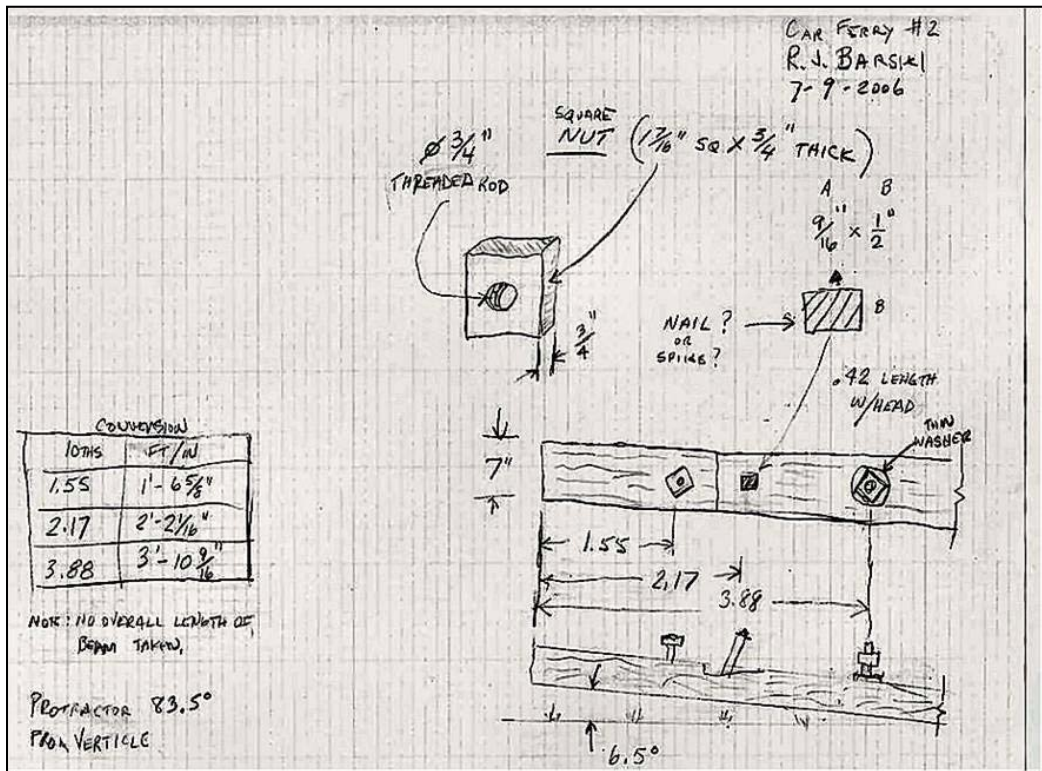 CAR FERRY #2
R.J. BARSKI
7-9-2006
SQUARE
NUT (1 7/16" SQ X 3/4" THICK)
Ø 3/4"
THREADED ROD
A B
9/16" x 1/2"
A
B
NAIL?
OR
SPIKE?
3/4"
.42 LENGTH
W/HEAD
THIN
WASHER
7"
CONVERSION
10THS FT/IN
1.55 1'-6 5/8"
2.17 2'-2 1/16"
3.88 3'-10 9/16"
1.55
2.17
3.88
NOTE: NO OVERALL LENGTH OF
BEAM TAKEN.
PROTRACTOR 83.5°
FROM VERTICLE
6.5°